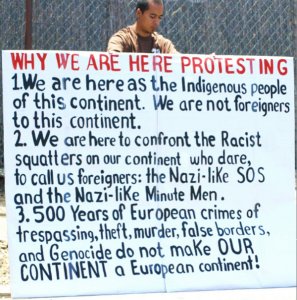 WHY WE ARE HERE PROTESTING
1.We are here as the Indigenous people
of this continent. We are not foreigners
to this continent.
2. We are here to confront the Racist
squatters on our continent who dare,
to call us foreigners: the Nazi-like SOS
and the Nazi-like Minute Men.
3.500 Years of European crimes of
trespassing, theft, murder, false borders,
and Genocide do not make OUR
CONTINENT a European continent!